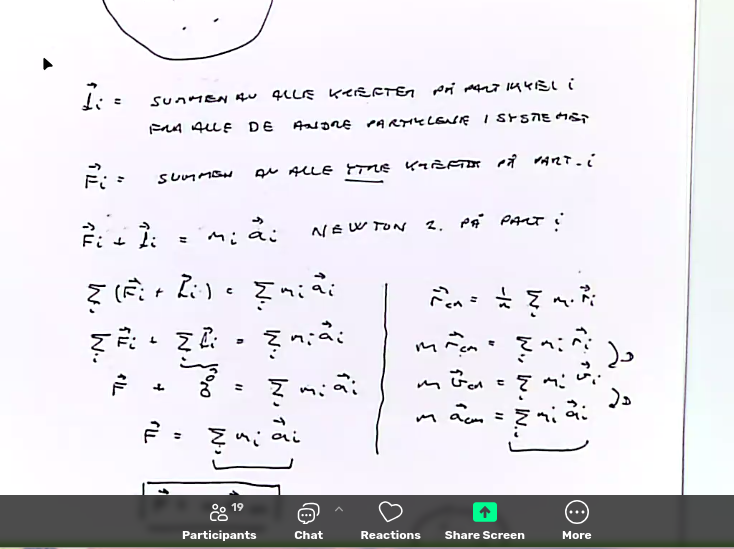 f⃗i = SUMMEN AV ALLE KREFTER PÅ PARTIKKEL i
FRA ALLE DE ANDRE PARTIKLENE I SYSTEMET
F⃗i = SUMMEN AV ALLE YTRE KREFTER PÅ PART. i
F⃗i + f⃗i = mi a⃗i NEWTON 2. PÅ PART i
∑i (F⃗i + f⃗i) = ∑i mi a⃗i
∑i F⃗i + ∑i f⃗i = ∑i mi a⃗i
F⃗ + 0⃗ = ∑i mi a⃗i
F⃗ = ∑i mi a⃗i
r⃗cm = 1/m ∑i mi r⃗i
m r⃗cm = ∑i mi r⃗i
m v⃗cm = ∑i mi v⃗i
m a⃗cm = ∑i mi a⃗i
19
Participants Chat Reactions Share Screen More